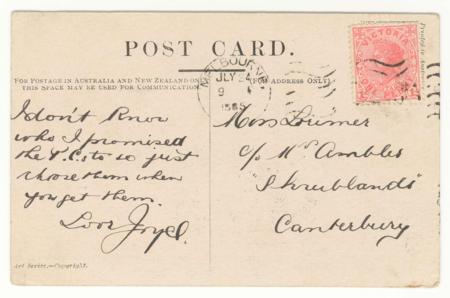 POST CARD.
FOR POSTAGE IN AUSTRALIA AND NEW ZEALAND ON
THIS SPACE MAY BE USED FOR COMMUNICATION
(FOR ADDRESS ONLY)
MELBOURNE
JLY 24
9
VICTORIA
Printed in
I don't know
who I promised
the P.C.s to so just
choose them when
you get them.
Love
Miss
c/o Mrs Ambler
"Shrublands"
Canterbury
Art Series.—Copyright.